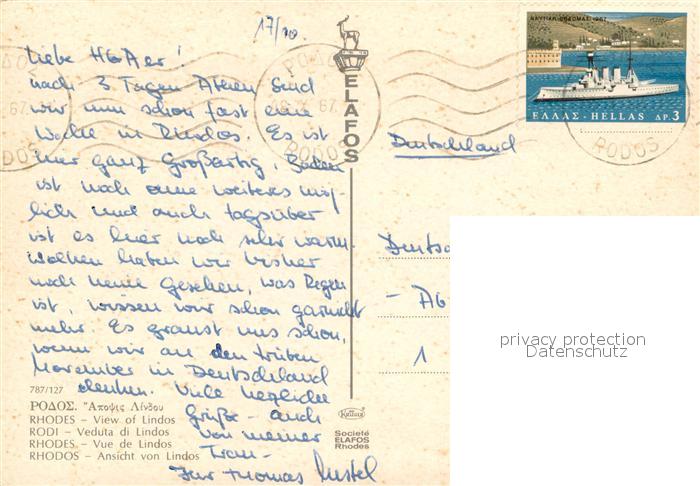 17/10.
Liebe HGAer!
nach 3 Tagen Athen sind
wir nun schon fast eine
Woche in Lindos. Es ist
hier ganz Großartig. Baden
ist noch ohne weiteres mög-
lich und auch tagsüber
ist es hier noch sehr warm.
Wolken haben wir bisher
noch keine gesehen, was Regen
ist, wissen wir schon garnicht
mehr. Es graust uns schon,
wenn wir an den trüben
November in Deutschland
denken. Viele herzliche
Grüße - auch
von meiner
Frau -
Ihr Thomas
787/127
ΡΟΔΟΣ. "Αποψις Λίνδου
RHODES – View of Lindos
RODI – Veduta di Lindos
RHODES – Vue de Lindos
RHODOS – Ansicht von Lindos
ELAFOS
Société
ELAFOS
Rhodes
ΝΑΥΤΙΚΗ ΕΒΔΟΜΑΣ 1967
ΕΛΛΑΣ - HELLAS ΔΡ. 3
ΡΟΔΟΣ
67
RODOS
Deutschland
Deutsc
- AG
1
privacy protection
Datenschutz